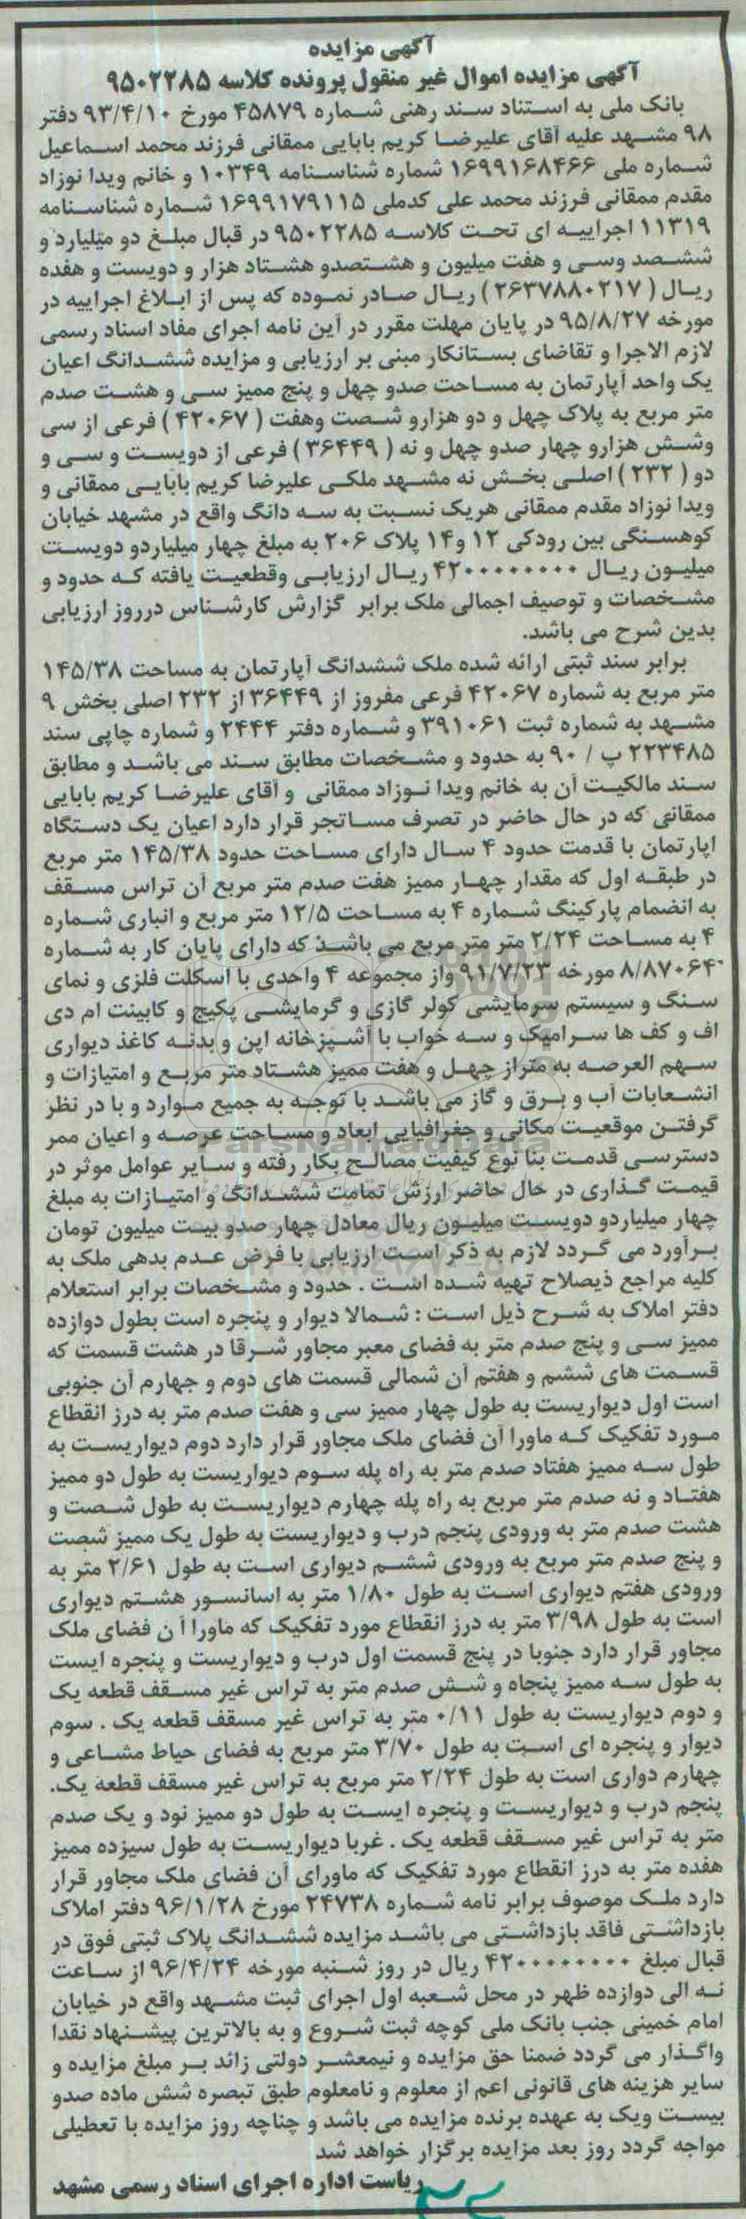 آگهی مزایده
آگهی مزایده اموال غیر منقول پرونده کلاسه ۹۵۰۲۲۸۵
بانک ملی به استناد سند رهنی شماره ۴۵۸۷۹ مورخ ۹۳/۴/۱۰ دفتر
۹۸ مشهد علیه آقای علیرضا کریم بابایی ممقانی فرزند محمد اسماعیل
شماره ملی ۱۶۹۹۱۶۸۴۶۶ شماره شناسنامه ۱۰۳۴۹ و خانم ویدا نوزاد
مقدم ممقانی فرزند محمد علی کدملی ۱۶۹۹۱۷۹۱۱۵ شماره شناسنامه
۱۱۳۱۹ اجراییه ای تحت کلاسه ۹۵۰۲۲۸۵ در قبال مبلغ دو میلیارد و
ششصد وسی و هفت میلیون و هشتصدو هشتاد هزار و دویست و هفده
ریال ( ۲۶۳۷۸۸۰۲۱۷ ) ریال صادر نموده که پس از ابلاغ اجراییه در
مورخه ۹۵/۸/۲۷ در پایان مهلت مقرر در آین نامه اجرای مفاد اسناد رسمی
لازم الاجرا و تقاضای بستانکار مبنی بر ارزیابی و مزایده ششدانگ اعیان
یک واحد آپارتمان به مساحت صدو چهل و پنج ممیز سی و هشت صدم
متر مربع به پلاک چهل و دو هزارو شصت وهفت ( ۴۲۰۶۷ ) فرعی از سی
وشش هزارو چهار صدو چهل و نه ( ۳۶۴۴۹ ) فرعی از دویست و سی و
دو ( ۲۳۲ ) اصلی بخش نه مشهد ملکی علیرضا کریم بابایی ممقانی و
ویدا نوزاد مقدم ممقانی هریک نسبت به سه دانگ واقع در مشهد خیابان
کوهسنگی بین رودکی ۱۲ و۱۴ پلاک ۲۰۶ به مبلغ چهار میلیاردو دویست
میلیون ریال ۴۲۰۰۰۰۰۰۰۰ ریال ارزیابی وقطعیت یافته که حدود و
مشخصات و توصیف اجمالی ملک برابر گزارش کارشناس درروز ارزیابی
بدین شرح می باشد.
برابر سند ثبتی ارائه شده ملک ششدانگ آپارتمان به مساحت ۱۴۵/۳۸
متر مربع به شماره ۴۲۰۶۷ فرعی مفروز از ۳۶۴۴۹ از ۲۳۲ اصلی بخش ۹
مشهد به شماره ثبت ۳۹۱۰۶۱ و شماره دفتر ۲۴۴۴ و شماره چاپی سند
۲۲۳۴۸۵ پ / ۹۰ به حدود و مشخصات مطابق سند می باشد و مطابق
سند مالکیت آن به خانم ویدا نوزاد ممقانی و آقای علیرضا کریم بابایی
ممقانی که در حال حاضر در تصرف مساتجر قرار دارد اعیان یک دستگاه
اپارتمان با قدمت حدود ۴ سال دارای مساحت حدود ۱۴۵/۳۸ متر مربع
در طبقه اول که مقدار چهار ممیز هفت صدم متر مربع آن تراس مسقف
به انضمام پارکینگ شماره ۴ به مساحت ۱۲/۵ متر مربع و انباری شماره
۴ به مساحت ۲/۲۴ متر متر مربع می باشد که دارای پایان کار به شماره
۸/۸۷۰۶۴ مورخه ۹۱/۷/۲۳ واز مجموعه ۴ واحدی با اسکلت فلزی و نمای
سنگ و سیستم سرمایشی کولر گازی و گرمایشی پکیج و کابینت ام دی
اف و کف ها سرامیک و سه خواب با آشپزخانه اپن و بدنه کاغذ دیواری
سهم العرصه به متراز چهل و هفت ممیز هشتاد متر مربع و امتیازات و
انشعابات آب و برق و گاز می باشد با توجه به جمیع موارد و با در نظر
گرفتن موقعیت مکانی و جغرافیایی ابعاد و مساحت عرصه و اعیان ممر
دسترسی قدمت بنا نوع کیفیت مصالح بکار رفته و سایر عوامل موثر در
قیمت گذاری در حال حاضر ارزش تمامت ششدانگ و امتیازات به مبلغ
چهار میلیاردو دویست میلیون ریال معادل چهار صدو بیت میلیون تومان
برآورد می گردد لازم به ذکر است ارزیابی با فرض عدم بدهی ملک به
کلیه مراجع ذیصلاح تهیه شده است . حدود و مشخصات برابر استعلام
دفتر املاک به شرح ذیل است : شمالا دیوار و پنجره است بطول دوازده
ممیز سی و پنج صدم متر به فضای معبر مجاور شرقا در هشت قسمت که
قسمت های ششم و هفتم آن شمالی قسمت های دوم و جهارم آن جنوبی
است اول دیواریست به طول چهار ممیز سی و هفت صدم متر به درز انقطاع
مورد تفکیک که ماورا آن فضای ملک مجاور قرار دارد دوم دیواریست به
طول سه ممیز هفتاد صدم متر به راه پله سوم دیواریست به طول دو ممیز
هفتاد و نه صدم متر مربع به راه پله چهارم دیواریست به طول شصت و
هشت صدم متر به ورودی پنجم درب و دیواریست به طول یک ممیز شصت
و پنج صدم متر مربع به ورودی ششم دیواری است به طول ۲/۶۱ متر به
ورودی هفتم دیواری است به طول ۱/۸۰ متر به اسانسور هشتم دیواری
است به طول ۳/۹۸ متر به درز انقطاع مورد تفکیک که ماورا آ ن فضای ملک
مجاور قرار دارد جنوبا در پنج قسمت اول درب و دیواریست و پنجره ایست
به طول سه ممیز پنجاه و شش صدم متر به تراس غیر مسقف قطعه یک
و دوم دیواریست به طول ۰/۱۱ متر به تراس غیر مسقف قطعه یک . سوم
دیوار و پنجره ای است به طول ۳/۷۰ متر مربع به فضای حیاط مشاعی و
چهارم دواری است به طول ۲/۲۴ متر مربع به تراس غیر مسقف قطعه یک.
پنجم درب و دیواریست و پنجره ایست به طول دو ممیز نود و یک صدم
متر به تراس غیر مسقف قطعه یک . غربا دیواریست به طول سیزده ممیز
هفده متر به درز انقطاع مورد تفکیک که ماورای آن فضای ملک مجاور قرار
دارد ملک موصوف برابر نامه شماره ۲۴۷۳۸ مورخ ۹۶/۱/۲۸ دفتر املاک
بازداشتی فاقد بازداشتی می باشد مزایده ششدانگ پلاک ثبتی فوق در
قبال مبلغ ۴۲۰۰۰۰۰۰۰۰ ریال در روز شنبه مورخه ۹۶/۴/۲۴ از ساعت
نه الی دوازده ظهر در محل شعبه اول اجرای ثبت مشهد واقع در خیابان
امام خمینی جنب بانک ملی کوچه ثبت شروع و به بالاترین پیشنهاد نقدا
واگذار می گردد ضمنا حق مزایده و نیمعشر دولتی زائد بر مبلغ مزایده و
سایر هزینه های قانونی اعم از معلوم و نامعلوم طبق تبصره شش ماده صدو
بیست ویک به عهده برنده مزایده می باشد و چناچه روز مزایده با تعطیلی
مواجه گردد روز بعد مزایده برگزار خواهد شد
ریاست اداره اجرای اسناد رسمی مشهد